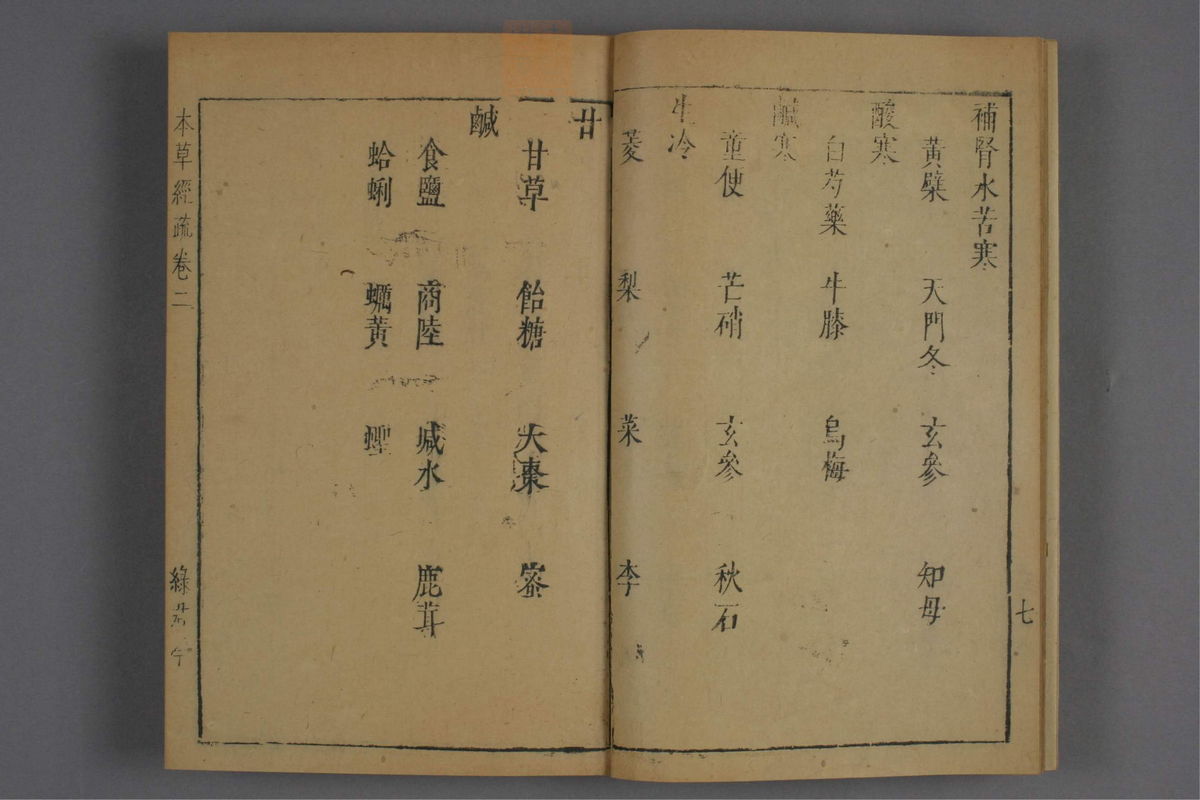 補腎水苦寒
黃檗 天門冬 玄參 知母
酸寒
白芍藥 牛膝 烏梅
鹹寒
童便 芒硝 玄參 秋石
生冷
菱 梨 菜 李
七
甘
甘草 飴糖 大棗 蜜
鹹
食鹽 商陸 堿水 鹿茸
蛤蜊 蠣黃 蟶
本草經疏卷二
綠君亭